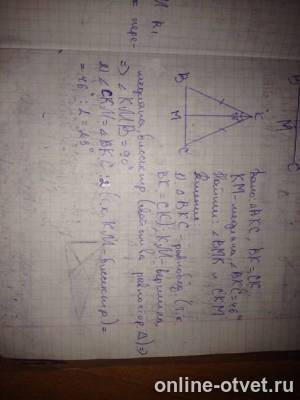 B
M
C
K
Дано: △BKC, BK=CK
KM-медиана, ∠BKC=46°
Найти: ∠BMK и ∠CKM
Решение
1) △BKC-равнобед (т.к
BK=CK), KM-вершина,
медиана, биссектр (свойства равнобедр △) ⇒
⇒ ∠KMB=90°
2) ∠CKM=∠BKC:2 (т.к KM-биссектр)=
=46°:2=23°
= пере-
online-otvet.ru